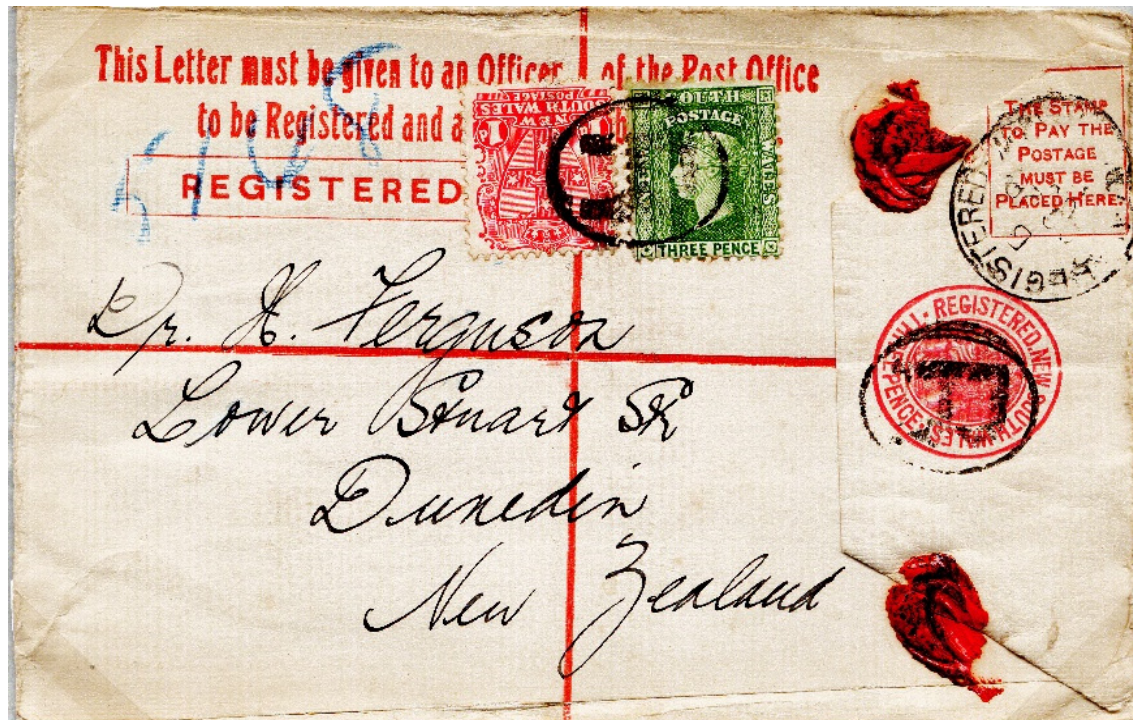 This Letter must be given to an Officer of the Post Office
to be Registered and a
REGISTERED
NEW
SOUTH WALES
POSTAGE
SOUTH
POSTAGE
WALES
THREE PENCE
THE STAMP
TO PAY THE
POSTAGE
MUST BE
PLACED HERE.
REGISTERED
REGISTERED. NEW SOUTH WALES. THREEPENCE.
5708
Dr. H. Ferguson
Lower Stuart St
Dunedin
New Zealand